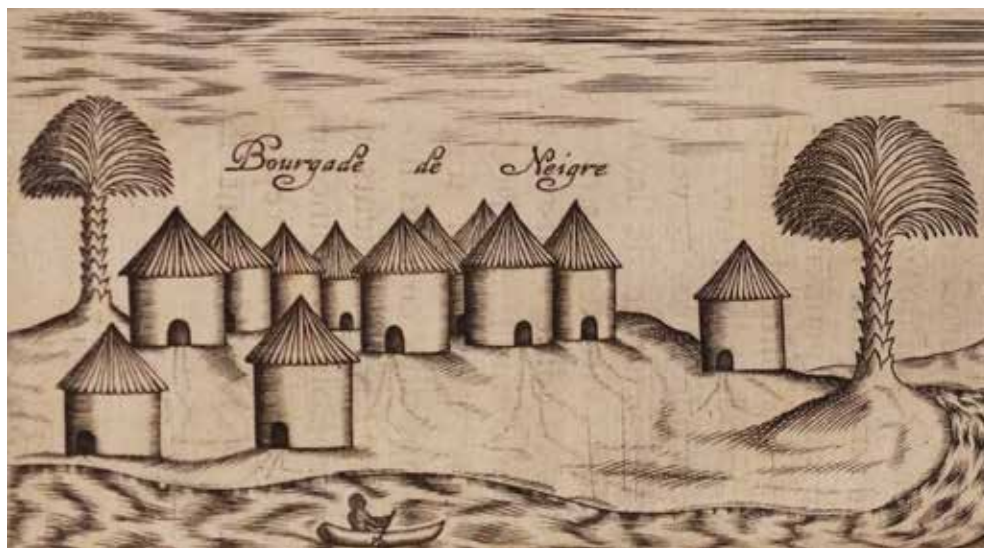 Bourgade de Neigre